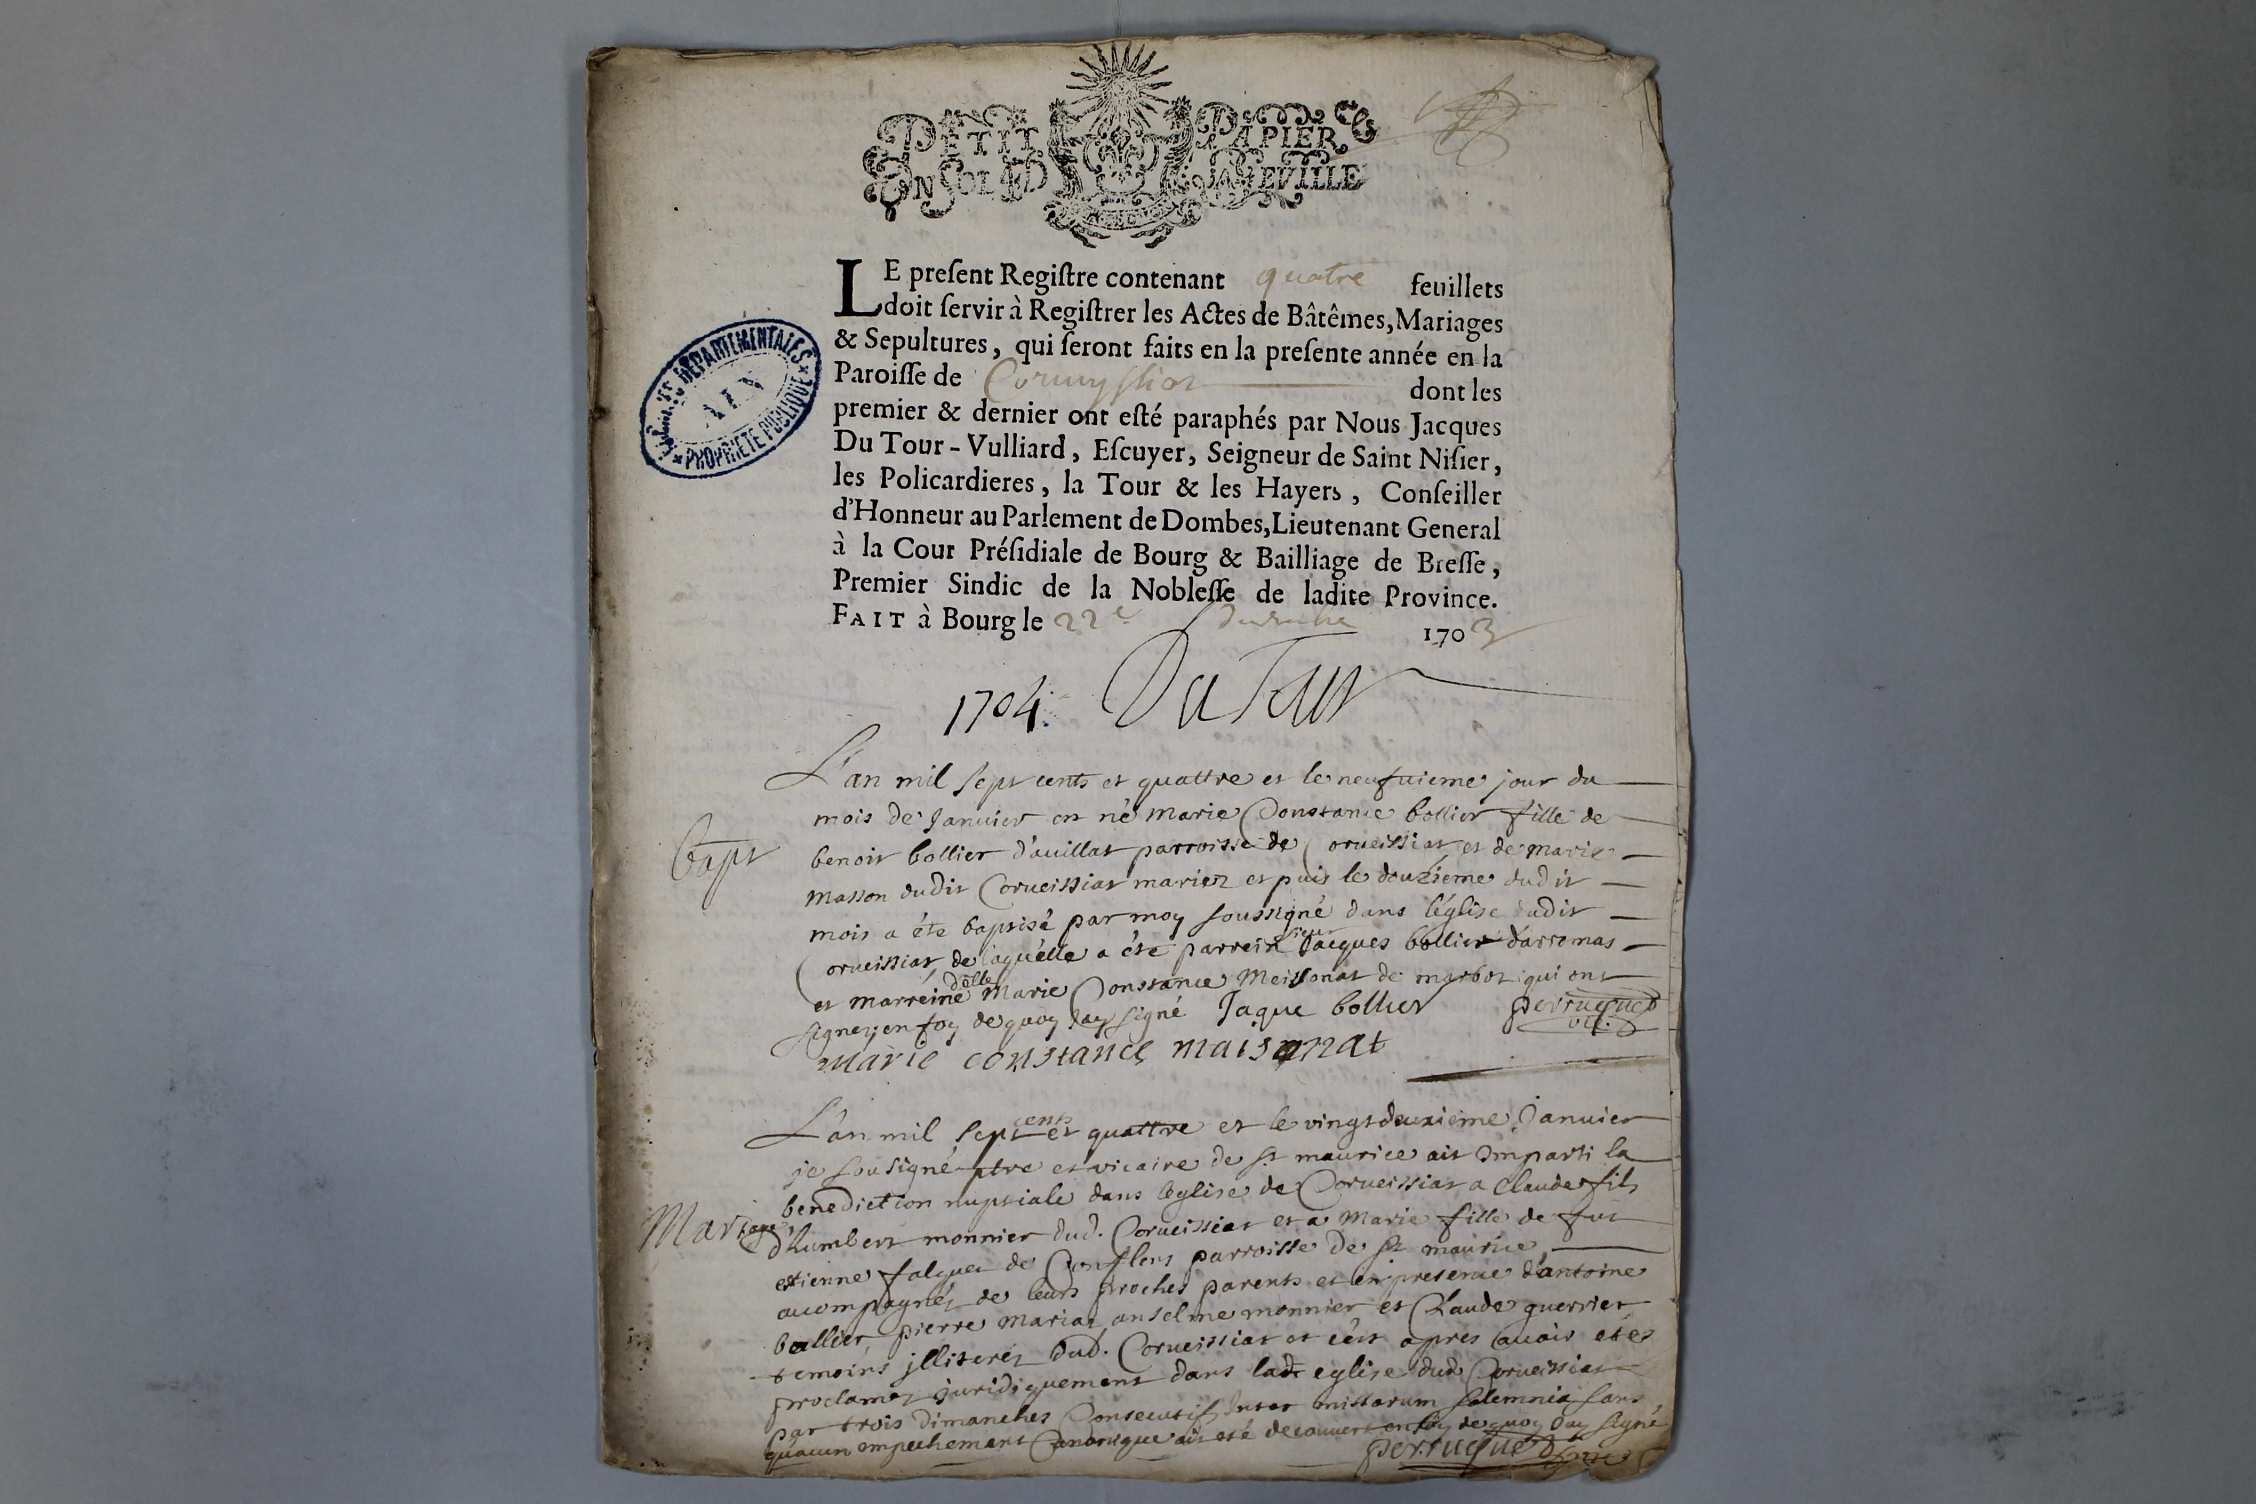 PETIT PAPIER
UN SOL 4D LA FEVILLE
LE preſent Regiſtre contenant quatre feuillets
doit ſervir à Regiſtrer les Actes de Bâtêmes, Mariages
& Sepultures, qui ſeront faits en la preſente année en la
Paroiſſe de dont les
premier & dernier ont eſté paraphés par Nous Jacques
Du Tour-Vulliard, Eſcuyer, Seigneur de Saint Niſier,
les Policardieres, la Tour & les Hayers, Conſeiller
d'Honneur au Parlement de Dombes, Lieutenant General
à la Cour Préſidiale de Bourg & Bailliage de Breſſe,
Premier Sindic de la Nobleſſe de ladite Province.
FAIT à Bourg le 22e 1703
ARCHIVES DEPARTEMENTALES
AIN
PROPRIETE PUBLIQUE
1704. DuTour
L'an mil sept cents et quattre et le neufuieme jour du
mois de Januier est né marie Constance bollier fille de
Bapt
benoit bollier d'auillat parroisse de Corueissiat et de marie
masson dudit Corueissiat mariez et puis le douzieme dudit
mois a éte baptisé par moy soussigné dans l'église dudit
Corueissiat de laquelle a éte parrein sieur Jacques bollier d'arromas
et marreine delle Marie Constance Meissonat de marbos qui ont
signez en foy de quoy Jay signé Jaque bollier perruquet
vic.
marie constance maisonat
L'an mil sept cents et quattre et le vingtdeuxieme Januier
je sousigné ptre et vicaire de st maurice ait Imparti la
benediction nuptiale dans leglise de Corueissiat a Claude fils
Mariage
d'humbert monnier dud. Corueissiat et a Marie fille de fut
etienne falquet de Conflens parroisse de st maurice
acompagnéz de leurs proches parents et en presence d'antoine
bollier, pierre mariat, anselme monnier et Claude guerrier
temoins jlliterez dud. Corueissiat et c'est apres auoir etes
proclamez juridiquement dans lad. eglise dud. Corueissiat
par trois dimanches Consecutifs Inter missarum solemnia sans
quaucun empechement Canonique ait eté decouuert en foy de quoy Jay signé
perruquet